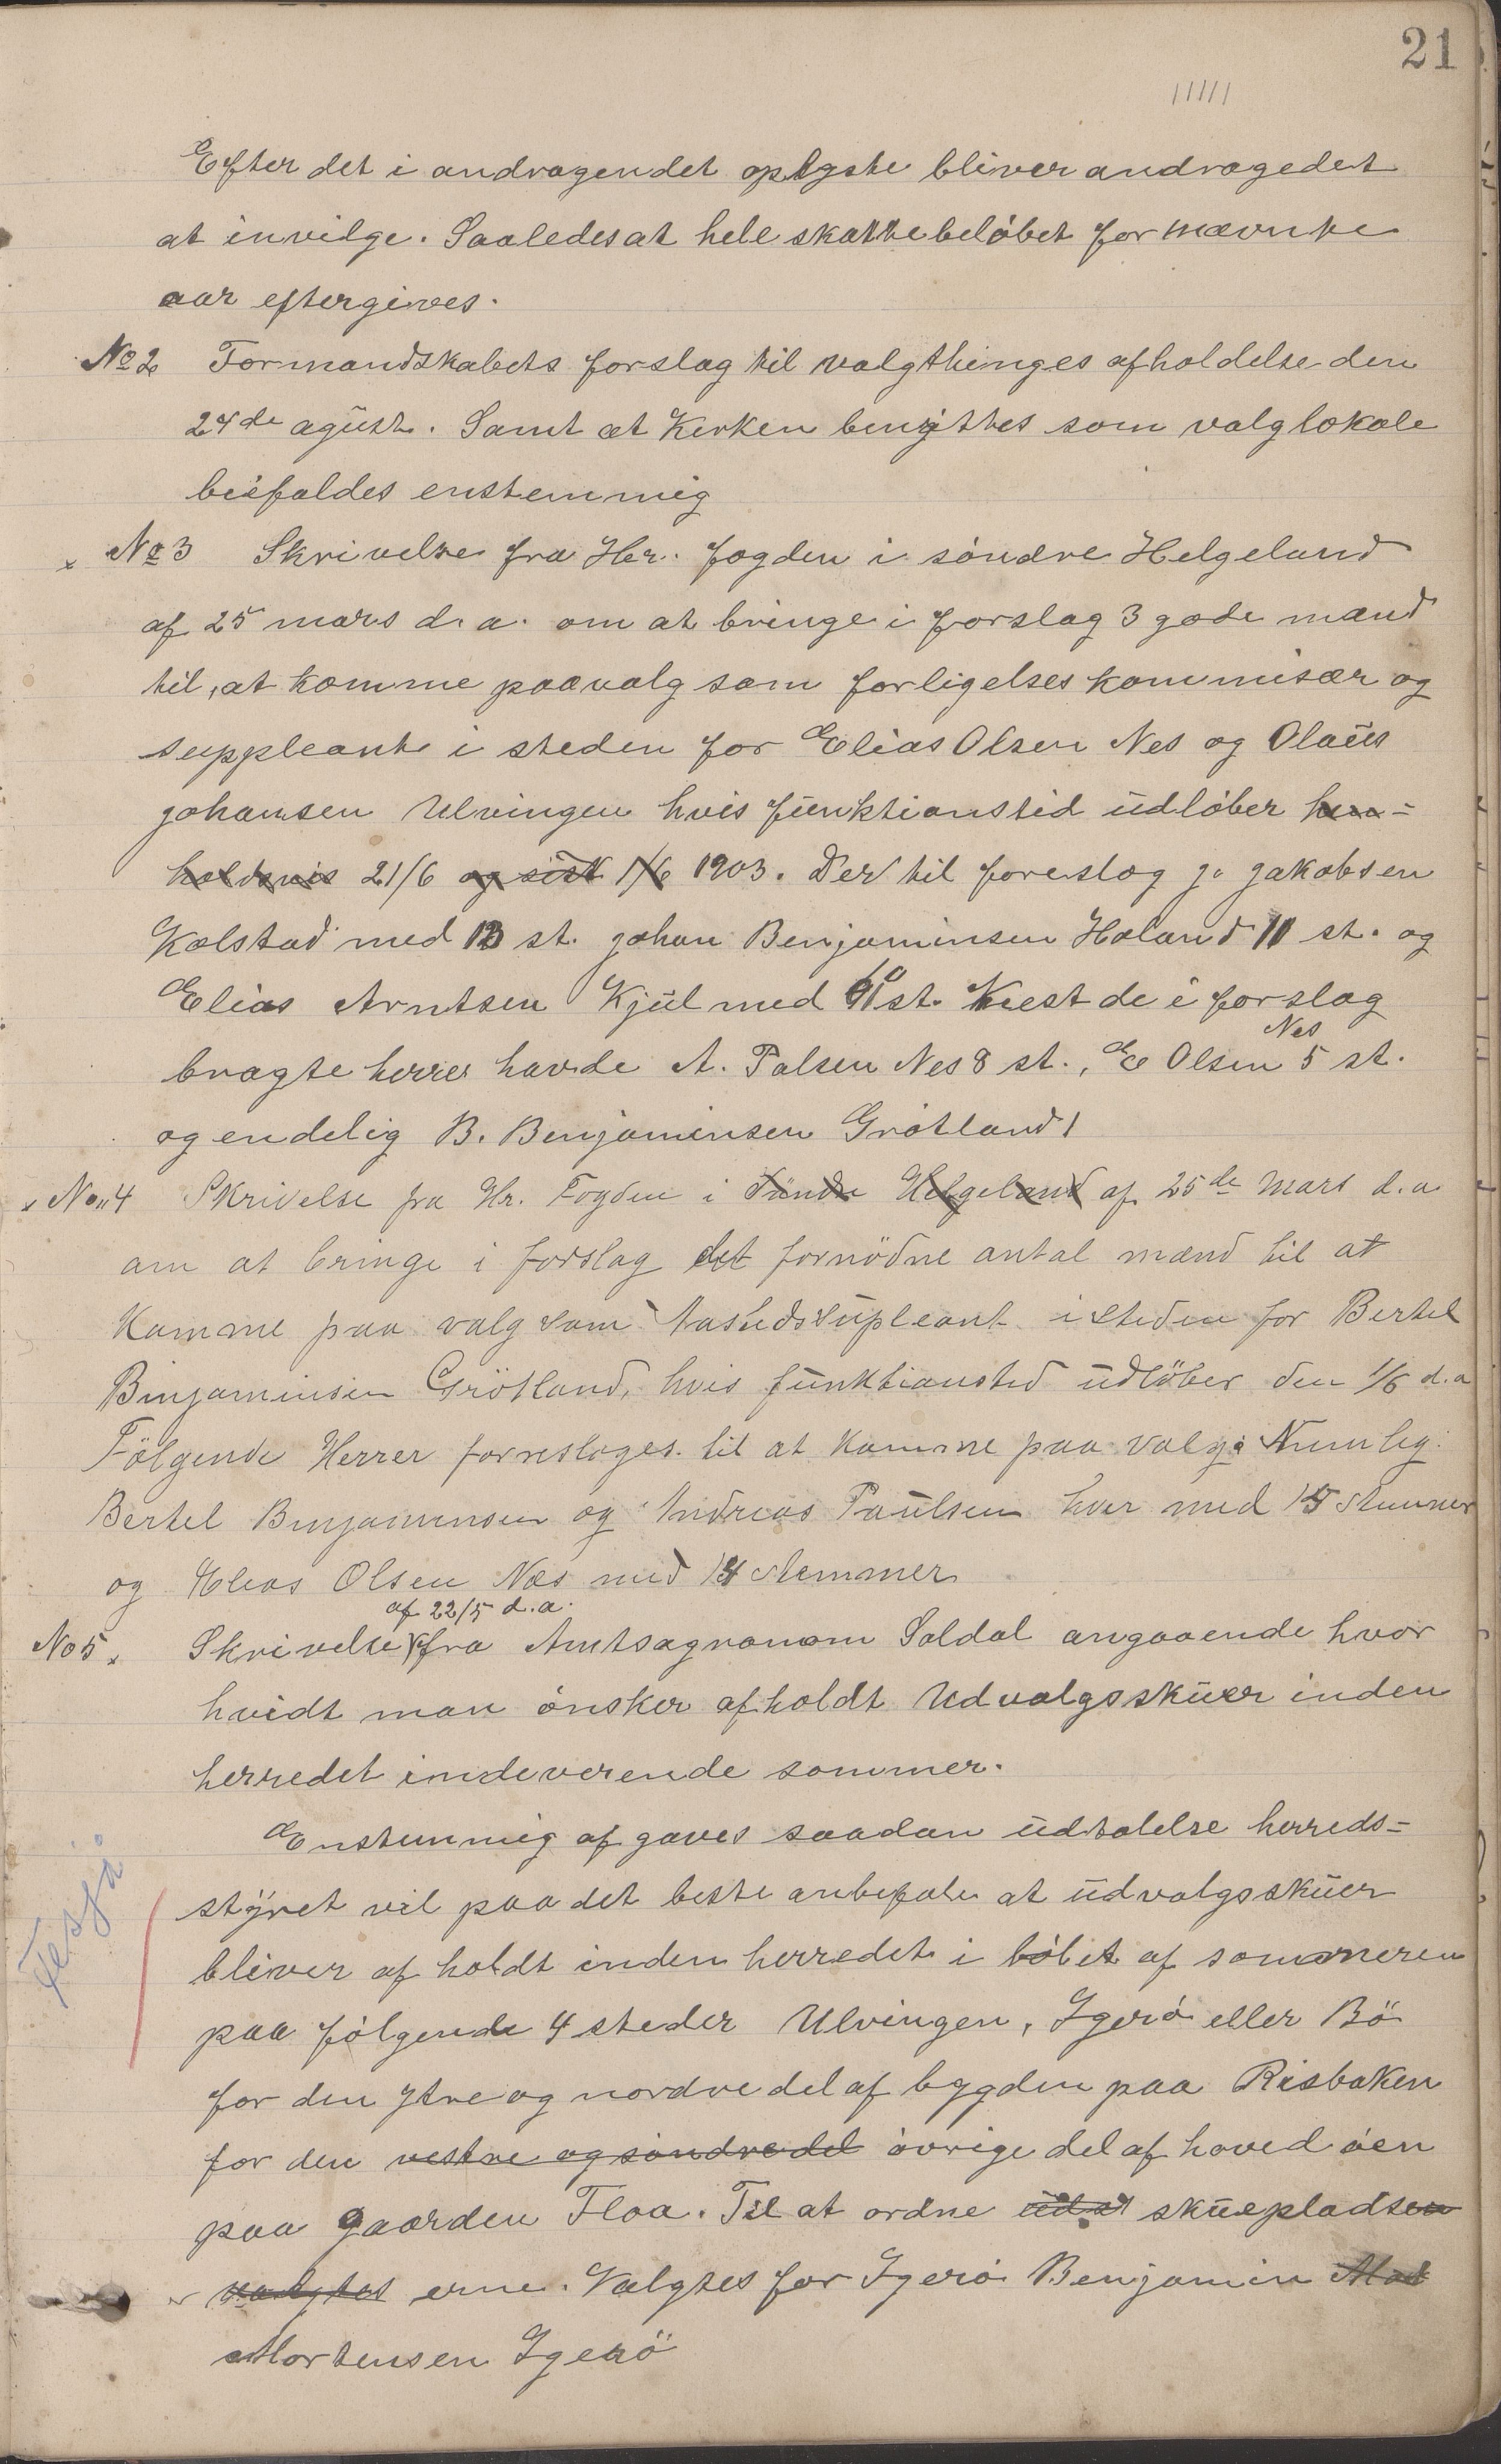 21
Efter det i andragendet oplyste bliver andragedet
at invilge. Saaledes at hele skattebeløbet for nævnte
aar eftergives.
No 2 Formandskabets forslag til valgthinges afholdelse den
24de agust. Samt at Kerken benyttes som valglokale
beifaldes enstemmig
No 3 Skrivelse fra Her. fogden i søndre Helgeland
af 25 mars d. a. om at bringe i forslag 3 gode mænd
til, at komme paavalg som forligelseskommisær og
suppleant i steden for Elias Olsen Nes og Olaus
johansen Ulvingen hvis funktionstid udløber hen-
holdsvis 21/6 og sist 1/6 1903. Der til foreslog j. jakobsen
Kolstad med 13 st. johan Benjaminsen Holand 11 st. og
Elias Arntsen Kjul med 10 st. Nest de i forslag
bragte herrer havde A. Palsen Nes 8 st., E Olsen Nes 5 st.
og endelig B. Benjaminsen Grøtland 1
No 4 Skrivelse fra Hr. Fogden i Søndre Helgeland af 25de Mars d. a
om at bringe i forslag det fornödne antal mænd til at
Komme paa valg som Aastedssupleant isteden for Bertel
Binjaminsen Grötland, hvis funktionstid udlöber den 1/6 d. a
Fölgende Herrer forreslages til at Komme paa valg: Nemlig:
Bertel Binjaminsen og Andreas Paulsen hver med 15 stemmer
og Elias Olsen Næs med 14 stemmer
af 22/5 d. a.
No 5. Skrivelse fra Amtsagronom Soldal angaaende hvor
hvidt man ønsker afholdt Udvalgsskuer inden
herredet indeverende sommer.
Enstemmig afgaves saadan udtalelse herreds-
styret vil paa det beste anbefale at udvalgsskuer
bliver afholdt inden herredet i løbet af sommeren
paa følgende 4 steder Ulvingen, Igerø eller Bö
for den ytre og nordre del af bygden paa Risbaken
for den vestre og søndre del øvrige del af hovedøen
paa gaarden Floa. Til at ordne skuepladsen
valgtes erne. Valgtes for Igerø Benjamin Mort
Mortensen Igerö